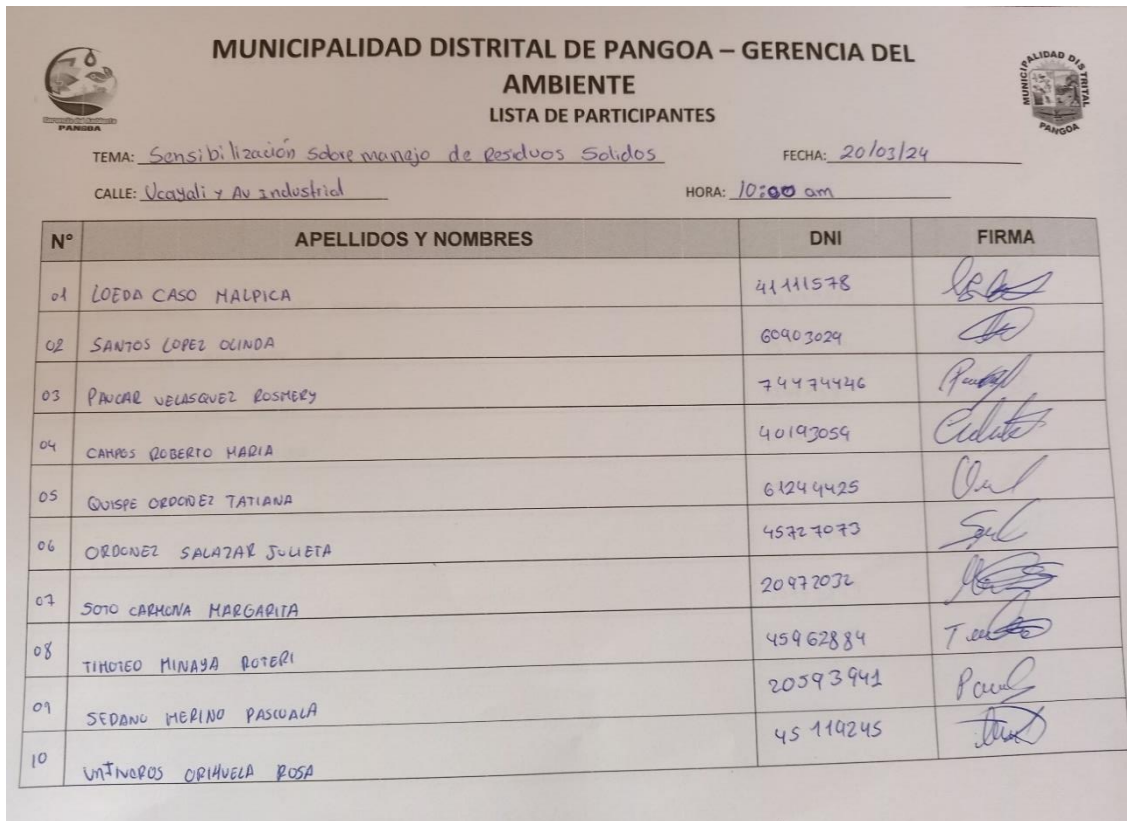 MUNICIPALIDAD DISTRITAL DE PANGOA – GERENCIA DEL
AMBIENTE
LISTA DE PARTICIPANTES
PANGOA
MUNICIPALIDAD DISTRITAL
PANGOA
TEMA: Sensibilización sobre manejo de Residuos Solidos FECHA: 20/03/24
CALLE: Ucayali y Av Industrial HORA: 10:00 am
N° APELLIDOS Y NOMBRES DNI FIRMA
01 LOEDA CASO MALPICA 41111578
02 SANTOS LOPEZ OLINDA 60903029
03 PAUCAR VELASQUEZ ROSMERY 74474446
04 CAMPOS ROBERTO MARIA 40193059
05 QUISPE ORDOÑEZ TATIANA 61244425
06 ORDONEZ SALAZAR JULIETA 45727073
07 SOTO CARMONA MARGARITA 20972032
08 TIMOTEO MINAYA ROTERI 45962884
09 SEDANO MERINO PASCUALA 20593941
10 UNTIVEROS ORIHUELA ROSA 45119245